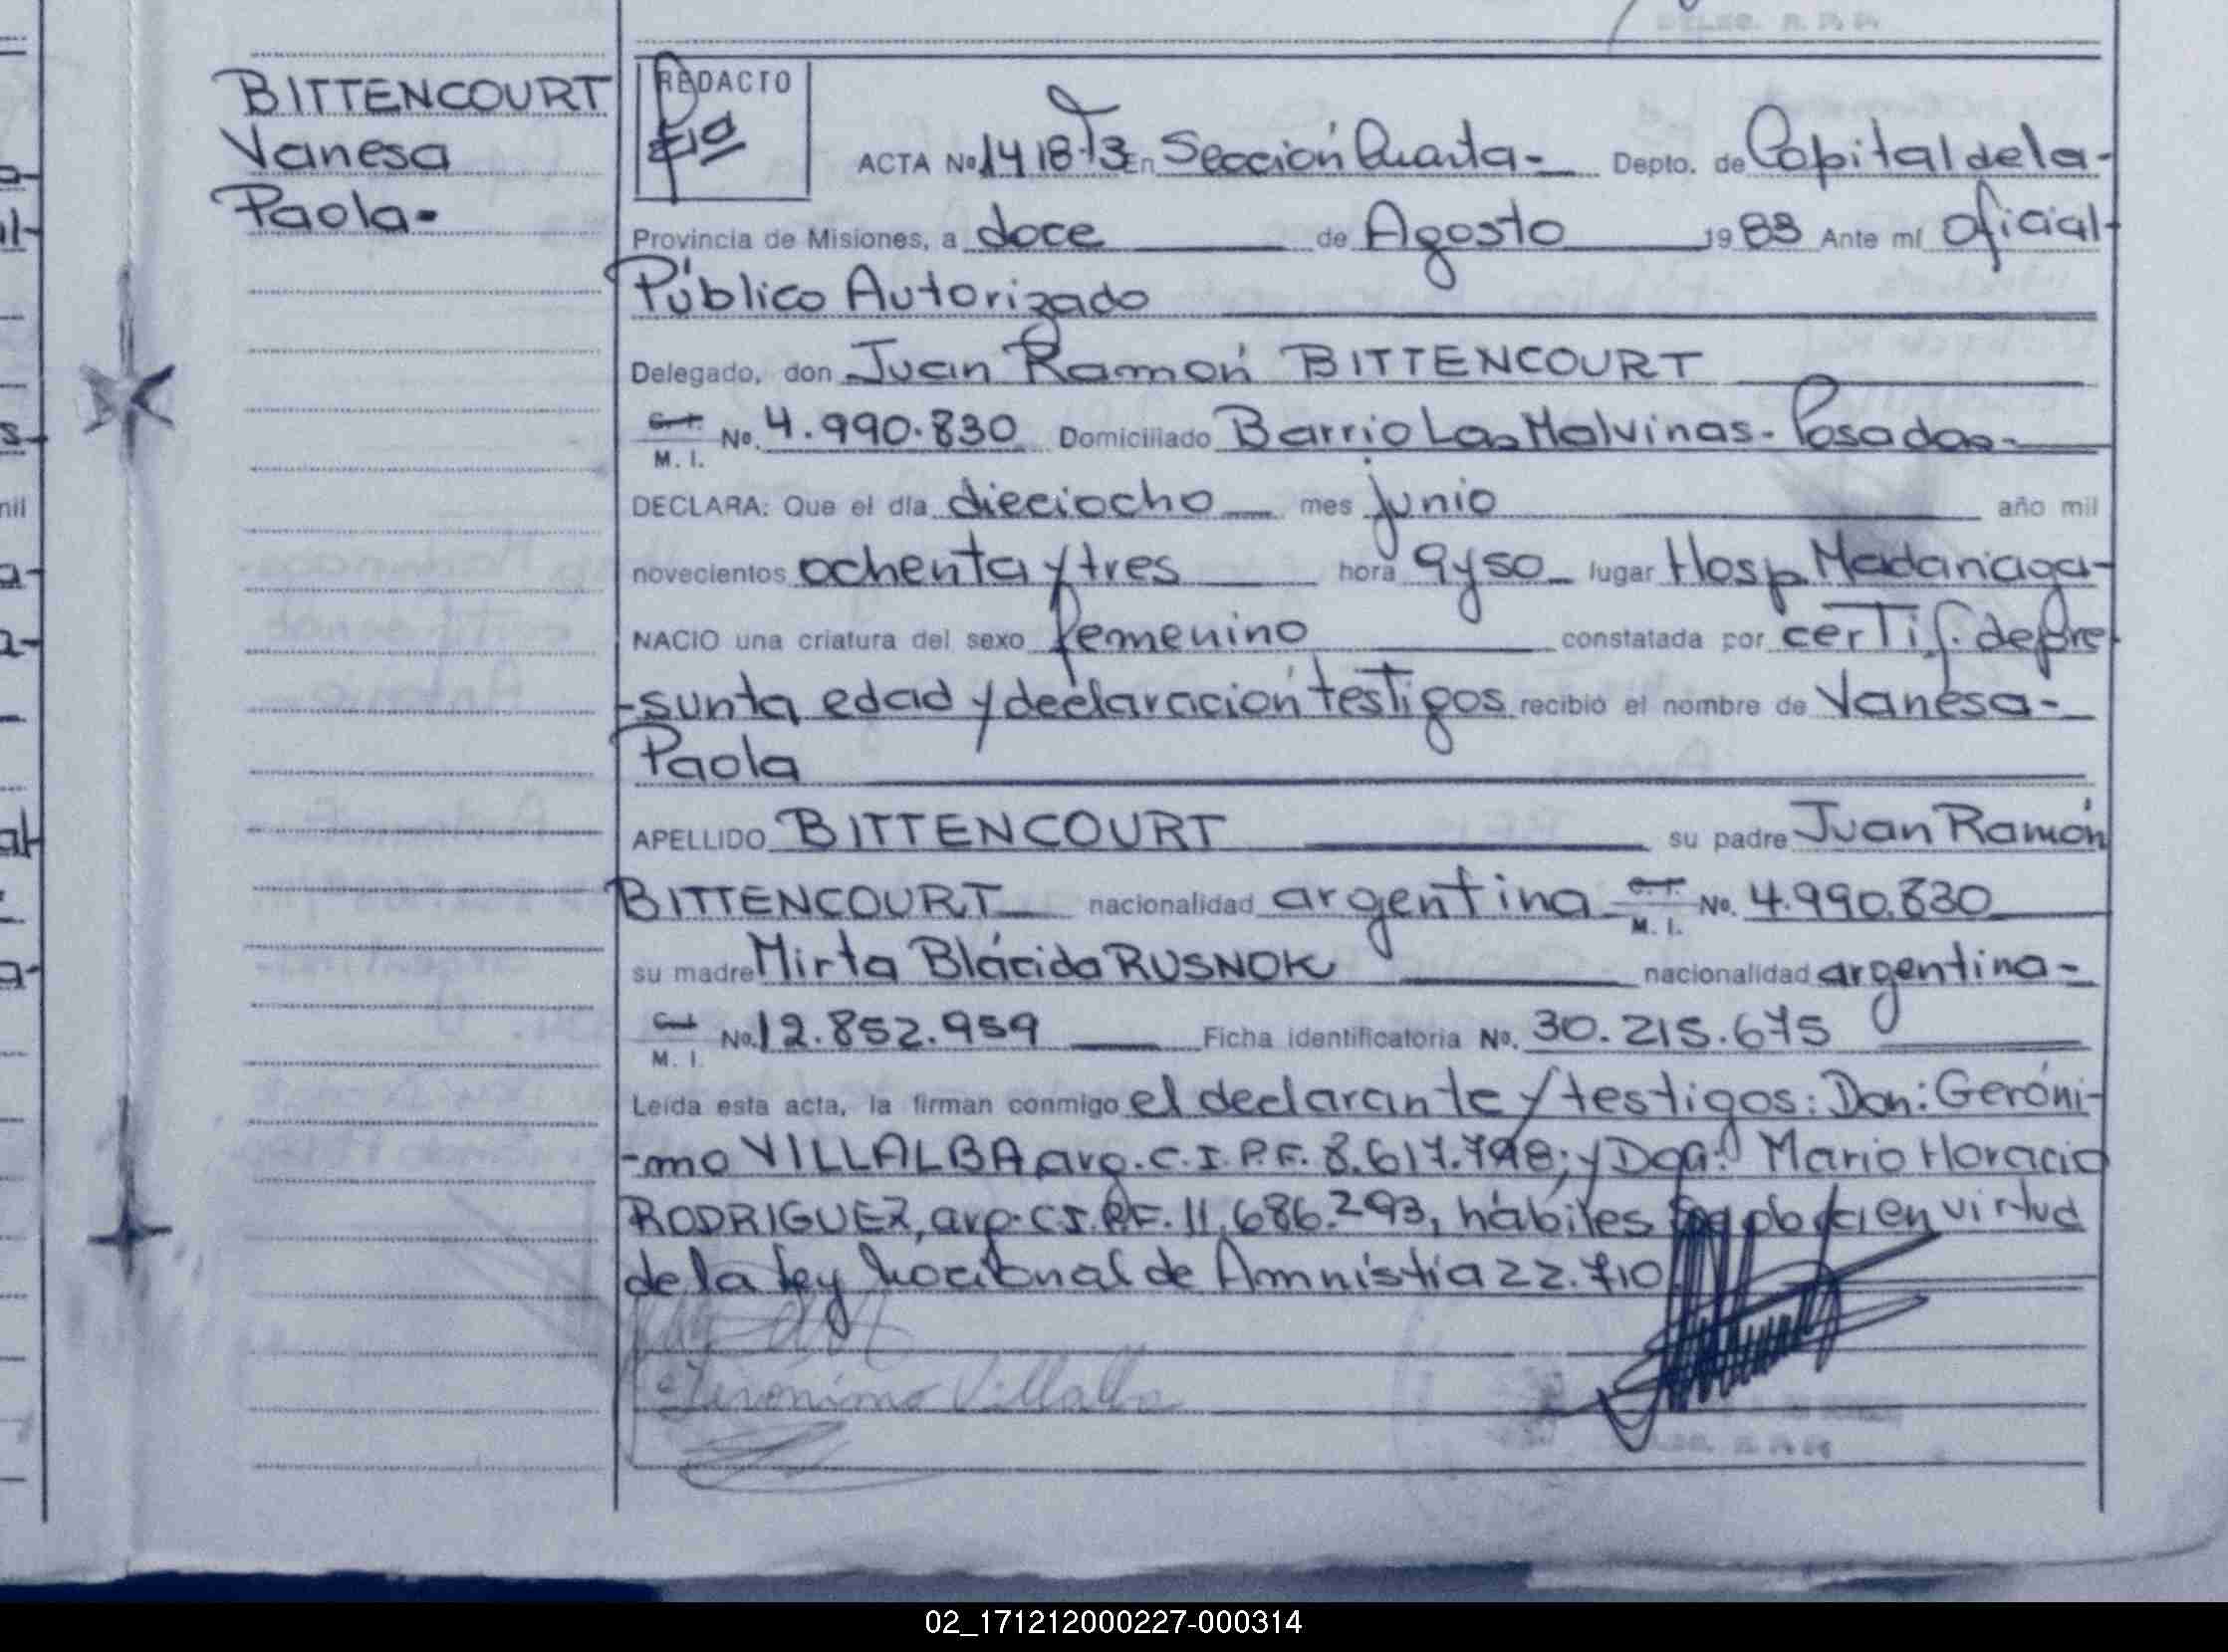 BITTENCOURT
Vanesa
Paola-
REDACTO
ACTA No 1418 T3 En Sección Cuarta- Depto. de Capital de la-
Provincia de Misiones, a doce de Agosto 1983 Ante mí Oficial-
Público Autorizado
Delegado, don Juan Ramón BITTENCOURT
C.I. M. I. No. 4.990.830 Domiciliado Barrio Las Malvinas- Posadas-
DECLARA: Que el día dieciocho mes junio año mil
novecientos ochenta y tres hora 9 y 50 lugar Hosp Madariaga-
NACIO una criatura del sexo femenino constatada por certif. de pre
-sunta edad y declaración testigos recibió el nombre de Vanesa-
Paola
APELLIDO BITTENCOURT su padre Juan Ramón
BITTENCOURT nacionalidad argentina C.I. M. I. No. 4.990.830
su madre Mirta Blácida RUSNOK nacionalidad argentina-
C.I. M. I. No. 12.852.959 Ficha identificatoria No. 30.215.675
Leída esta acta, la firman conmigo el declarante y testigos: Don: Geróni-
-mo VILLALBA arg. C.I.P.F. 8.617.798; y Dña: Mario Horacio
RODRIGUEZ, arg. C.I.P.F. 11.686.293, hábiles en virtud
de la ley Nacional de Amnistía 22.710
Jeronimo Villalba
02_171212000227-000314